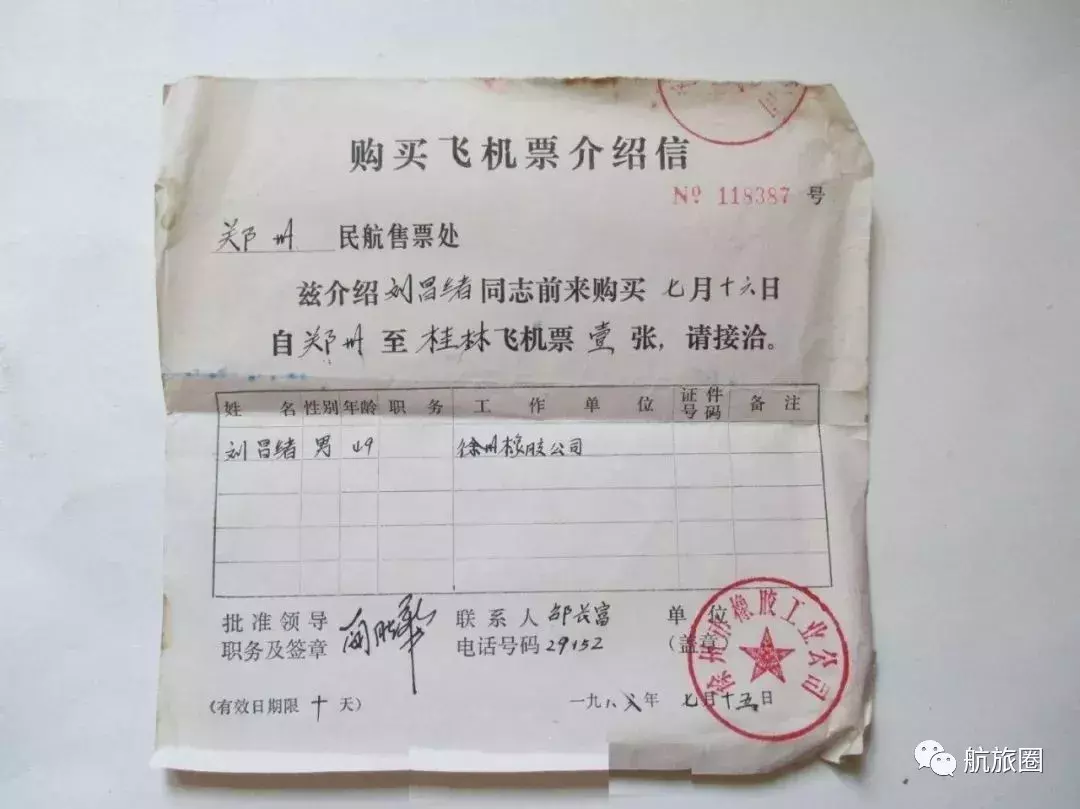 购买飞机票介绍信
№ 118387 号
郑州 民航售票处
兹介绍刘昌绪同志前来购买 七月十六日
自郑州至桂林飞机票壹张，请接洽。
姓名 性别 年龄 职务 工作单位 证件号码 备注
刘昌绪 男 49 徐州橡胶公司
批准领导职务及签章
联系人 邵长富
电话号码 29152
单位（盖章）
徐州市橡胶工业公司
（有效日期限 十 天）
一九八 年 七月十五日
航旅圈